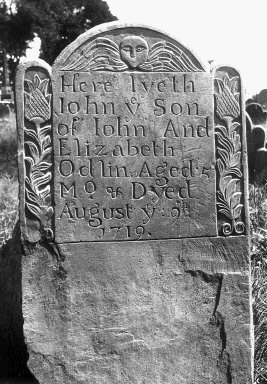 Here lyeth
Iohn yͤ Son
of Iohn And
Elizabeth
Odlin Aged 5
Mo & Dyed
August yͤ: 9th
1719.